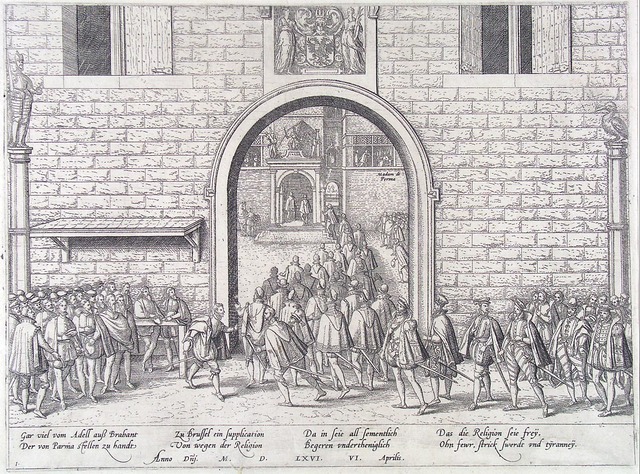 Madam de
Parma
Gar viel vom Adell auß Brabant
Der von Parma stellen zu handt.
Zu Brussel ein supplication
Von wegen der Religion
Da in seie all sementlich
Begeren vndertheniglich
Das die Religion seie frey,
Ohn feur, strick, swerdt vnd tÿranneÿ.
Anno Dñj. M. D. LXVI. VI. Aprilis.
1.